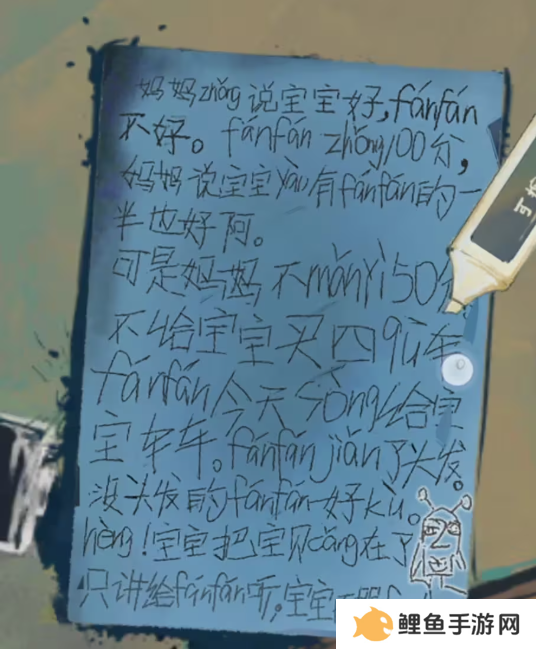 妈妈zhǒng说宝宝好,fánfán
不好。fánfán zhǒng100分,
妈妈说宝宝yào有fánfán的一
半也好阿。
可是妈妈不mǎnyì50分
不给宝宝买四qū车
fánfán今天sòng给宝
宝车车。fánfán jiǎn了头发。
没头发的fánfán好kù。
hèng!宝宝把宝贝cáng在了
只讲给fánfán听,宝宝
鲤鱼手游网